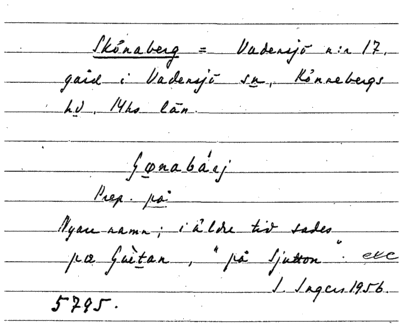 Skönaberg = Vadensjö n:r 17,
gård i Vadensjö sn, Rönnebergs
hd, Mhs län.
Prep. på
Nyare namn; i äldre tid sades
"på Sjutton". etc
I. Ingers 1956.
5795.